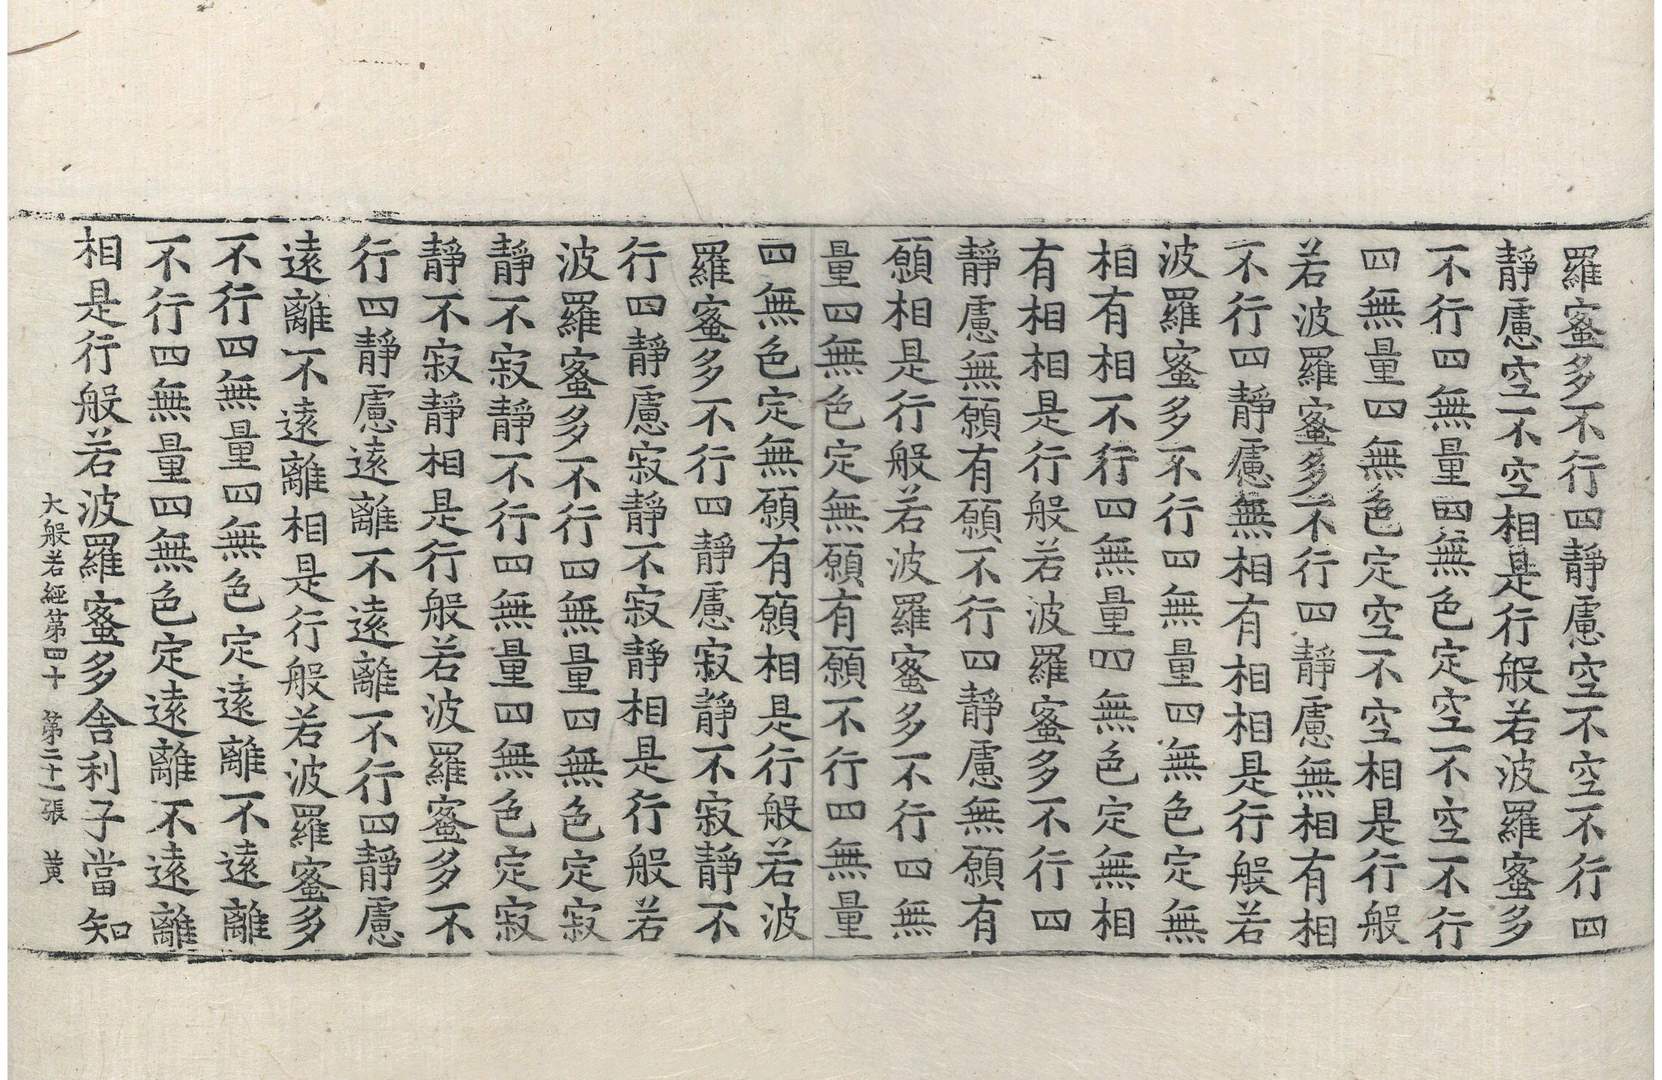 羅蜜多不行四靜慮空不空不行四
靜慮空不空相是行般若波羅蜜多
不行四無量四無色定空不空不行
四無量四無色定空不空相是行般
若波羅蜜多不行四靜慮無相有相
不行四靜慮無相有相相是行般若
波羅蜜多不行四無量四無色定無
相有相不行四無量四無色定無相
有相相是行般若波羅蜜多不行四
靜慮無願有願不行四靜慮無願有
願相是行般若波羅蜜多不行四無
量四無色定無願有願不行四無量
四無色定無願有願相是行般若波
羅蜜多不行四靜慮寂靜不寂靜不
行四靜慮寂靜不寂靜相是行般若
波羅蜜多不行四無量四無色定寂
靜不寂靜不行四無量四無色定寂
靜不寂靜相是行般若波羅蜜多不
行四靜慮遠離不遠離不行四靜慮
遠離不遠離相是行般若波羅蜜多
不行四無量四無色定遠離不遠離
不行四無量四無色定遠離不遠離
相是行般若波羅蜜多舍利子當知
大般若經第四十 第二十一張 黃